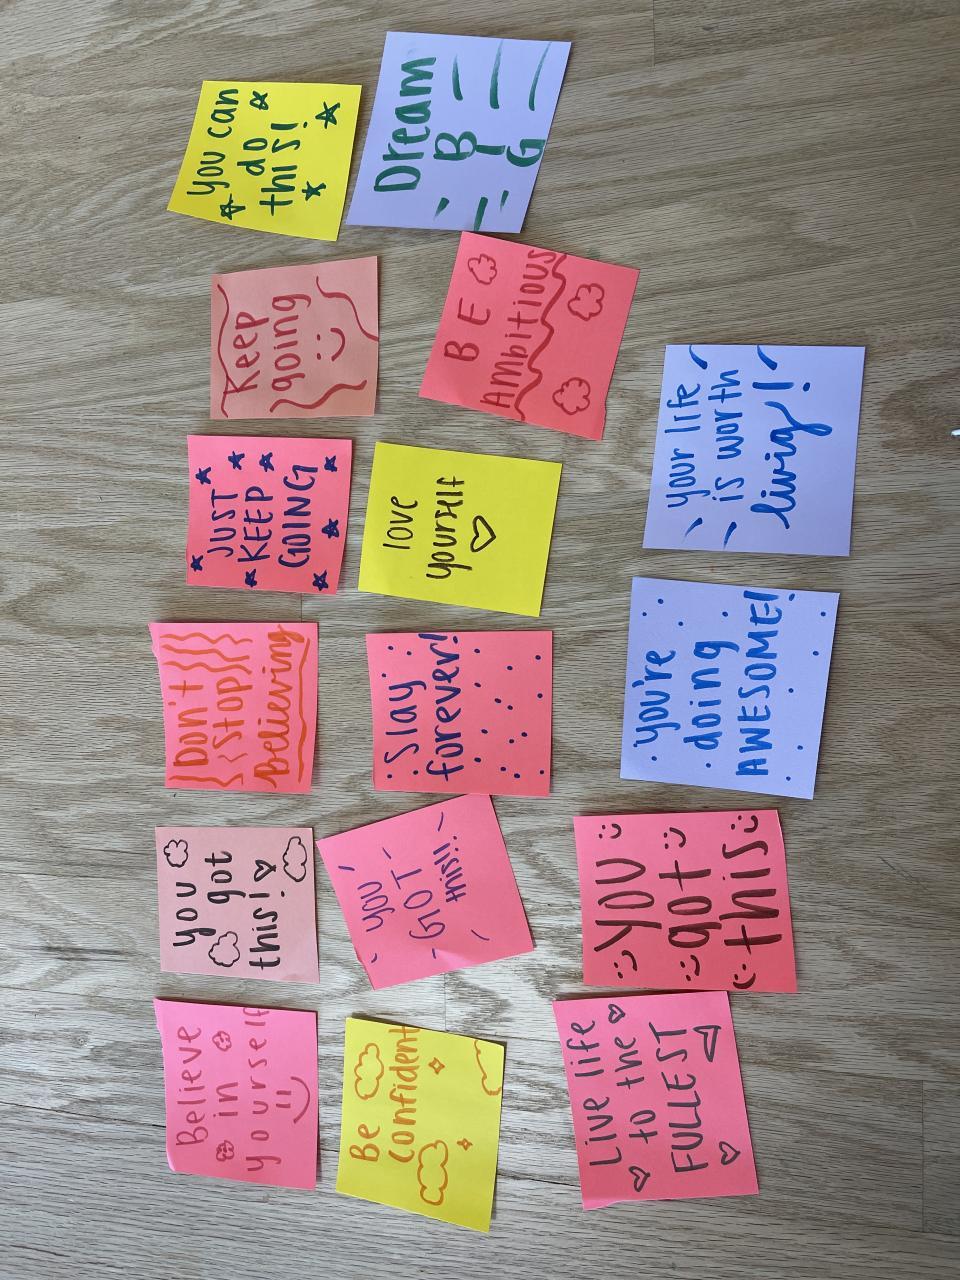 Believe
in
yourself
you
got
this!
Don't
Stop
Believing
JUST
KEEP
GOING
Keep
going
You can
do
this!
Be
Confident
YOU
GOT
this!!
Slay
forever!
love
yourself
BE
Ambitious
Dream
B
I
G
Live life
to the
FULLEST
YOU
got
this
You're
doing
AWESOME!
your life
is worth
living!